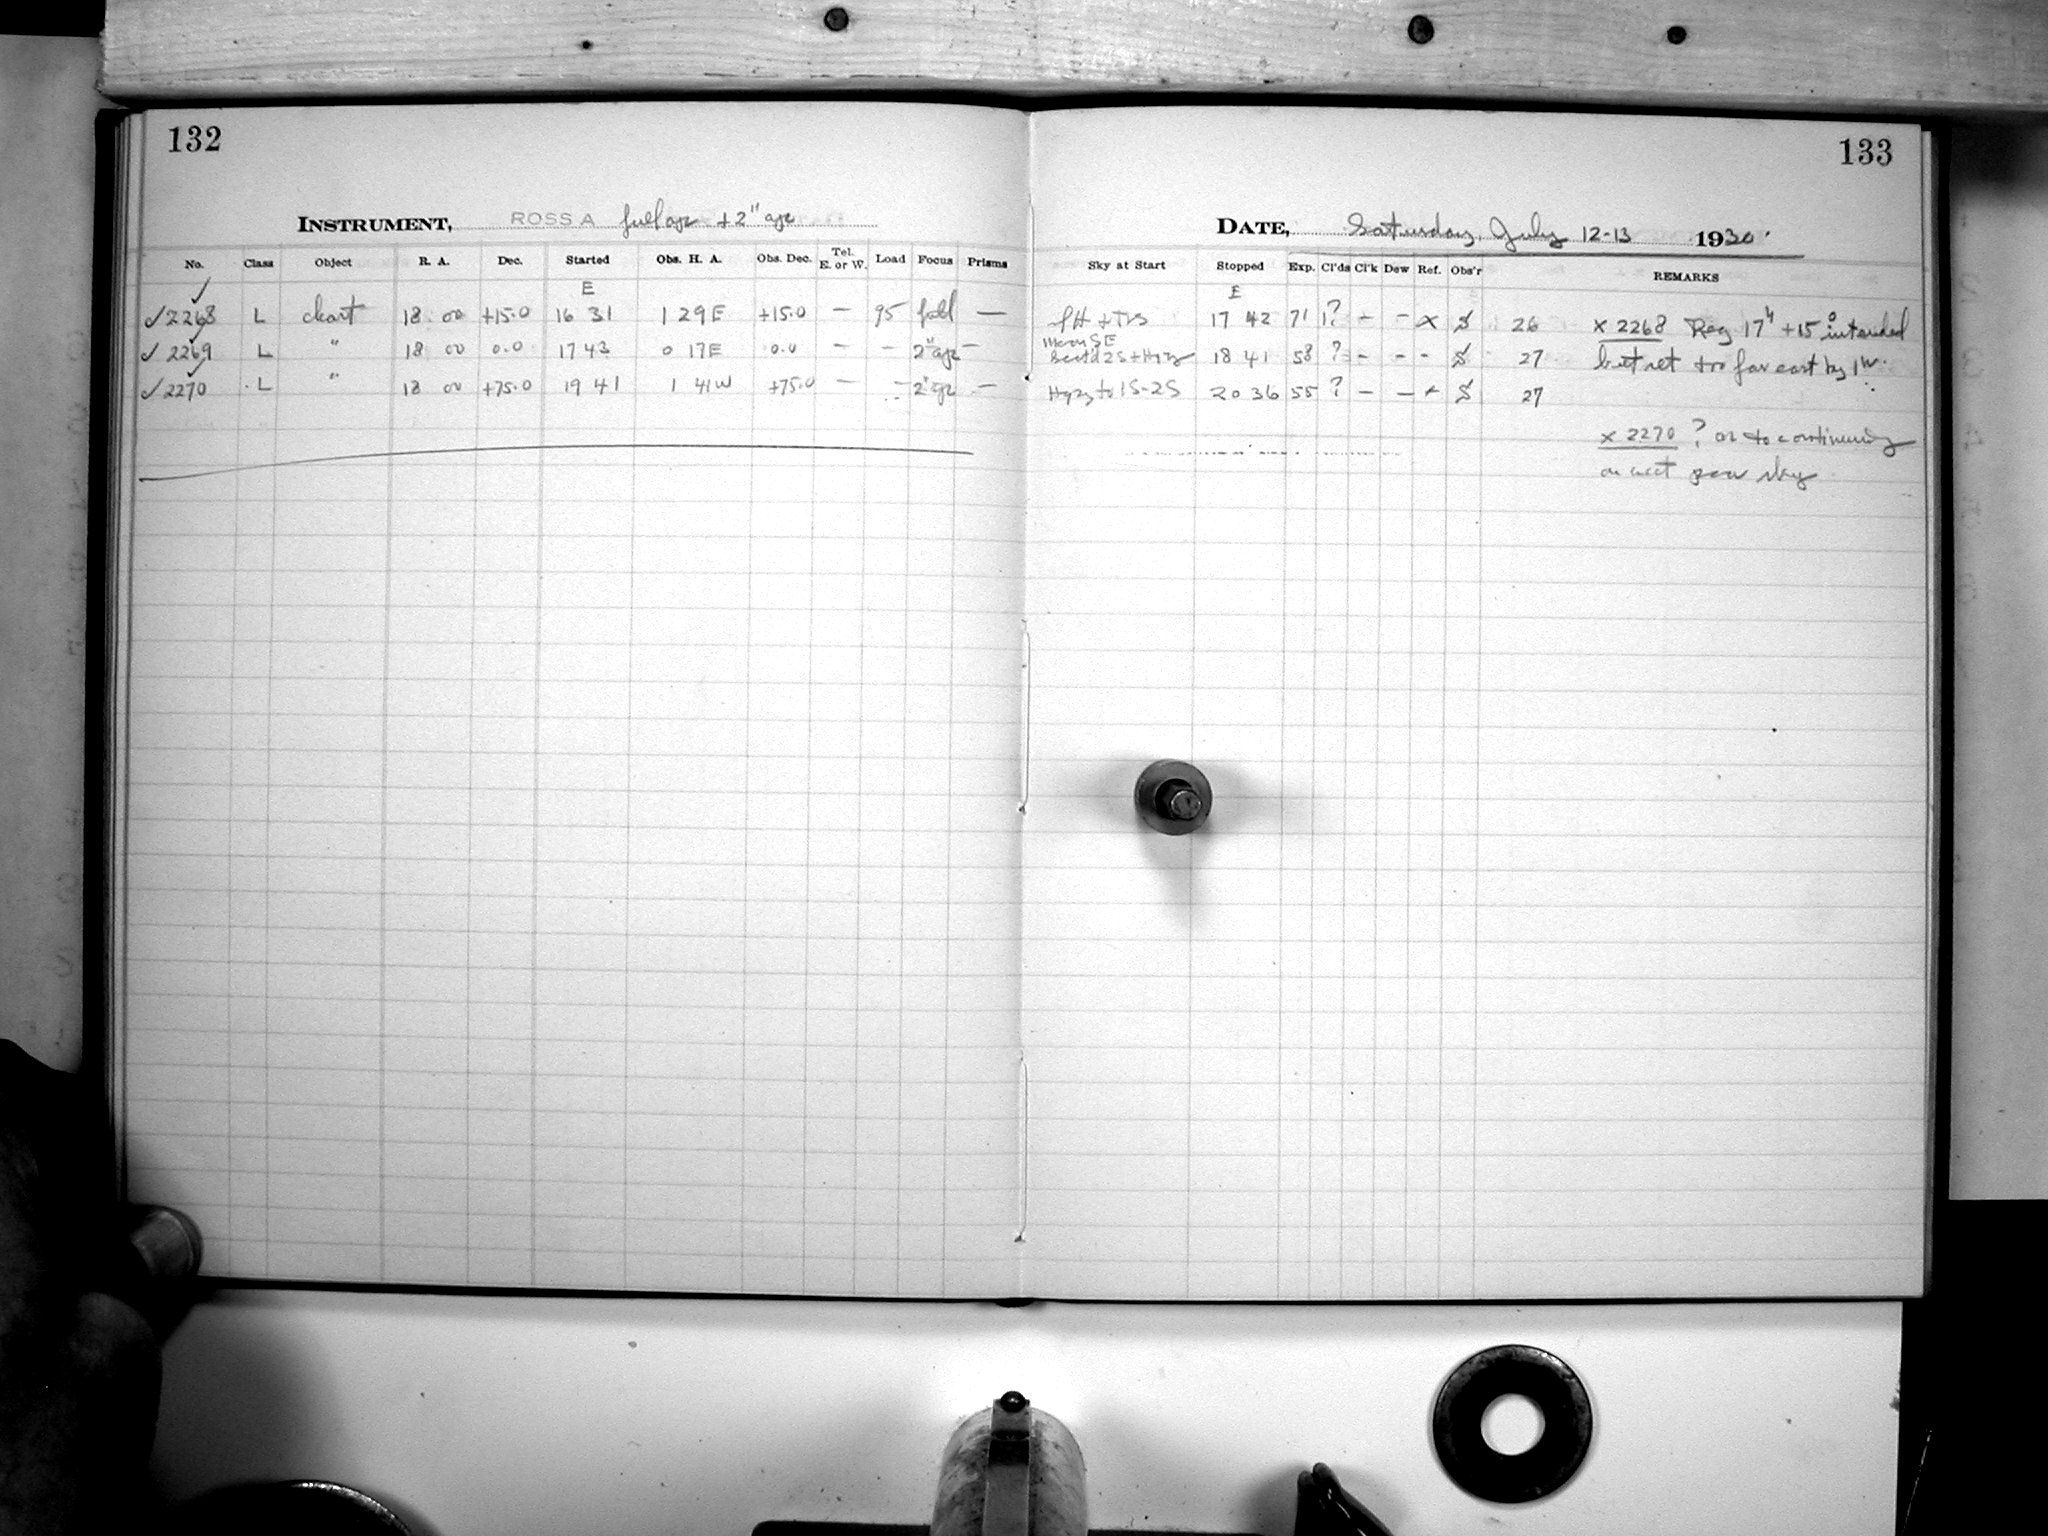 132
133
INSTRUMENT, ROSS A full ap + 2" ap
DATE, Saturday, July 12-13 1930.
No. Class Object R. A. Dec. Started Obs. H. A. Obs. Dec. Tel. E. or W. Load Focus Prisms
Sky at Start Stopped Exp. Cl'ds Cl'k Dew Ref. Obs'r REMARKS
E
E
✓ 2268 L chart 18 00 +15.0 16 31 1 29E +15.0 — 95 full —
17 42 71 1? - - x S 26 x 2268 Reg 17h +15° intended
Moon SE
✓ 2269 L " 18 00 0.0 17 43 0 17E 0.0 — - 2" ap -
Scatd 2S + Hazy 18 41 58 ? - - - S 27 but set too far east by 1h.
✓ 2270 L " 18 00 +75.0 19 41 1 41W +75.0 — - 2" ap —
Hazy to 1S-2S 20 36 55 ? - - x S 27
x 2270 ? as to continuing
on acct poor sky